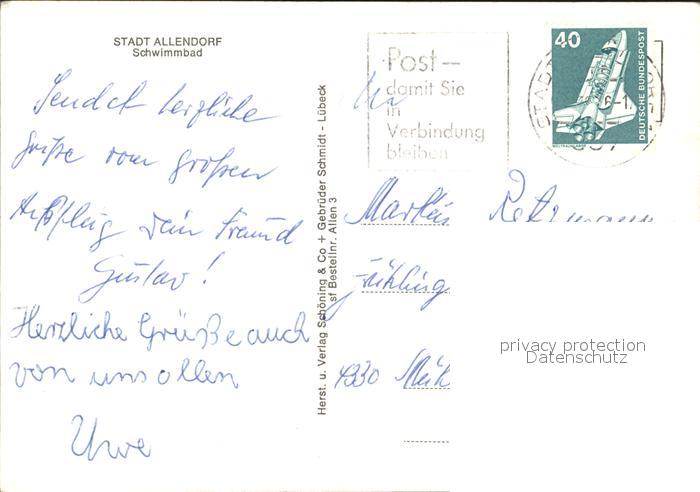 STADT ALLENDORF
Schwimmbad
Sendet herzliche
Grüße vom großen
Ausflug Dein Freund
Gustav!
Herzliche Grüße auch
von uns allen
Uwe
Herst. u. Verlag Schöning & Co + Gebrüder Schmidt - Lübeck
sf Bestellnr. Allen 3
Post —
damit Sie
in
Verbindung
bleiben
40
DEUTSCHE BUNDESPOST
WELTRAUMLABOR
Markus
Frühling
4330 Mülh
privacy protection
Datenschutz